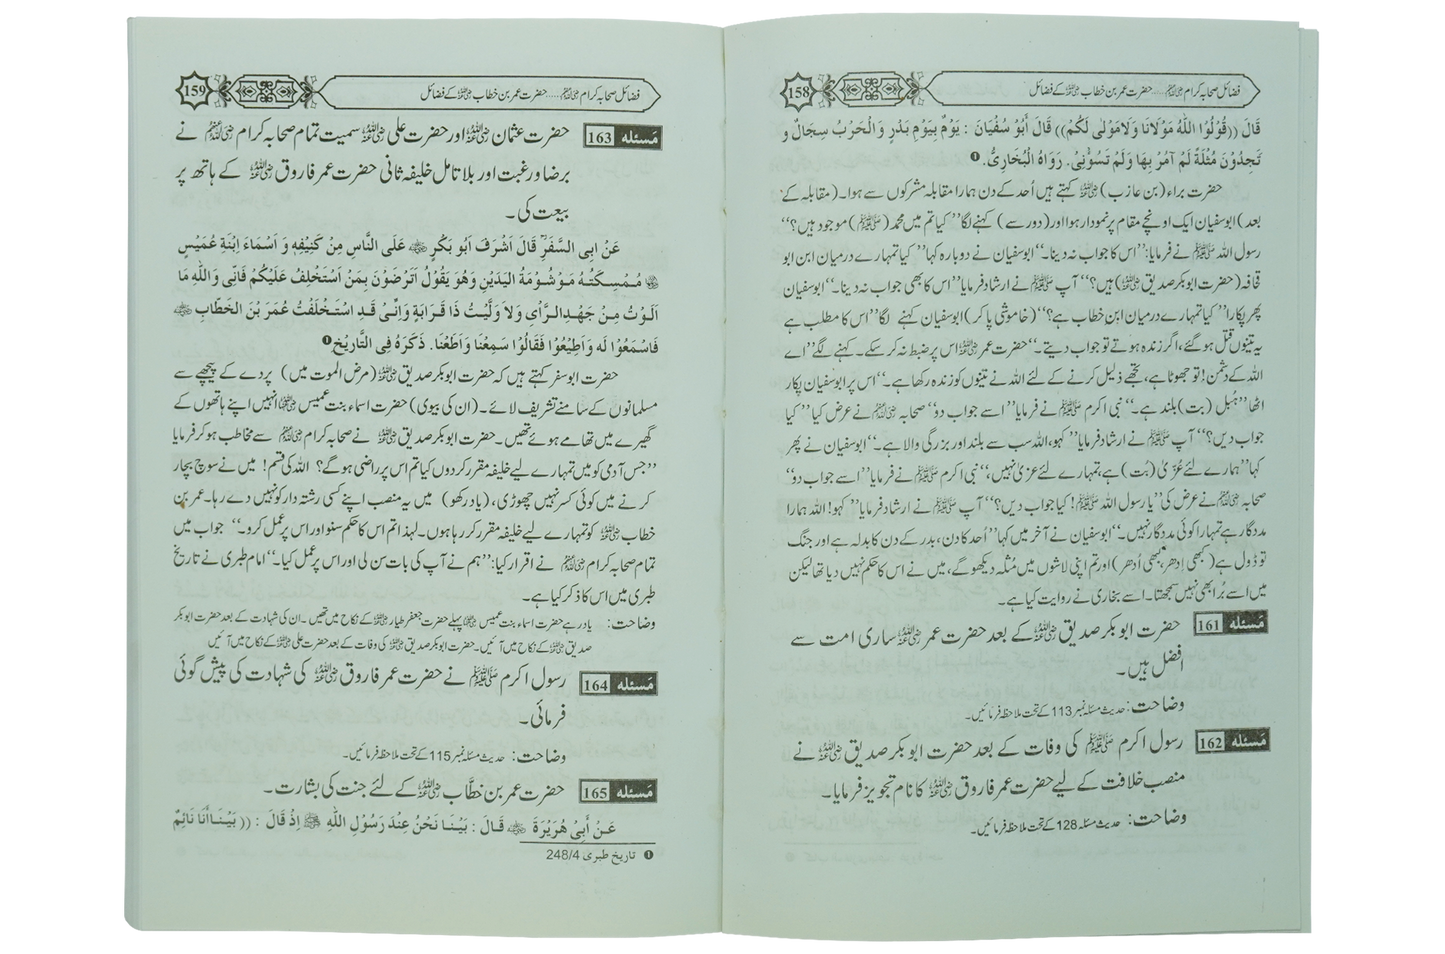 158
فضائل صحابہ کرام ﷢ ..... حضرت عمر بن خطاب ﷜ کے فضائل
قَالَ ((قُوْلُوْا اَللّٰهُ مَوْلَانَا وَلَامَوْلٰی لَكُمْ)) قَالَ أَبُوْ سُفْيَانَ : يَوْمٌ بِيَوْمِ بَدْرٍ وَ الْحَرْبُ سِجَالٌ وَ
تَجِدُوْنَ مُثْلَةً لَمْ آمُرْ بِهَا وَلَمْ تَسُوْنِیْ. رَوَاهُ الْبُخَارِیُّ.❶
حضرت براء (بن عازب) ﷜ کہتے ہیں اُحد کے دن ہمارا مقابلہ مشرکوں سے ہوا۔ (مقابلہ کے
بعد) ابوسفیان ایک اونچے مقام پر نمودار ہوا اور (دور سے) کہنے لگا ’’کیا تم میں محمد (ﷺ) موجود ہیں؟‘‘
رسول اللہ ﷺ نے فرمایا: ’’اس کا جواب نہ دینا۔‘‘ ابوسفیان نے دوبارہ کہا ’’کیا تمہارے درمیان ابن ابو
قحافہ (حضرت ابوبکر صدیق ﷜) ہیں؟‘‘ آپ ﷺ نے ارشاد فرمایا ’’اس کا بھی جواب نہ دینا۔‘‘ ابوسفیان
پھر پکارا ’’کیا تمہارے درمیان ابن خطاب ہے؟‘‘ (خاموشی پا کر) ابوسفیان کہنے لگا ’’اس کا مطلب ہے
یہ تینوں قتل ہوگئے، اگر زندہ ہوتے تو جواب دیتے۔‘‘ حضرت عمر ﷜ اس پر ضبط نہ کر سکے۔ کہنے لگے ’’اے
اللہ کے دشمن! تو جھوٹا ہے، تجھے ذلیل کرنے کے لئے اللہ نے تینوں کو زندہ رکھا ہے۔‘‘ اس پر ابوسفیان پکار
اٹھا ’’ہُبل (بت) بلند ہے۔‘‘ نبی اکرم ﷺ نے فرمایا ’’اسے جواب دو‘‘ صحابہ ﷢ نے عرض کیا ’’کیا
جواب دیں؟‘‘ آپ ﷺ نے ارشاد فرمایا ’’کہو، اللہ سب سے بلند اور بزرگی والا ہے۔‘‘ ابوسفیان نے پھر
کہا ’’ہمارے لئے عُزّیٰ (بُت) ہے، تمہارے لئے عزیٰ نہیں‘‘، نبی اکرم ﷺ نے فرمایا ’’اسے جواب دو‘‘
صحابہ ﷢ نے عرض کی ’’یا رسول اللہ ﷺ! کیا جواب دیں؟‘‘ آپ ﷺ نے ارشاد فرمایا ’’کہو! اللہ ہمارا
مددگار ہے تمہارا کوئی مددگار نہیں۔‘‘ ابوسفیان نے آخر میں کہا ’’اُحد کا دن، بدر کے دن کا بدلہ ہے اور جنگ
تو ڈول ہے (کبھی اِدھر، کبھی اُدھر) اور تم اپنی لاشوں میں مثلہ دیکھو گے، میں نے اس کا حکم نہیں دیا تھا لیکن
میں اسے بُرا بھی نہیں سمجھتا۔ اسے بخاری نے روایت کیا ہے۔
مَسئلہ 161 حضرت ابوبکر صدیق ﷜ کے بعد حضرت عمر ﷜ ساری امت سے
افضل ہیں۔
وضاحت: حدیث مسئلہ نمبر 113 کے تحت ملاحظہ فرمائیں۔
مَسئلہ 162 رسول اکرم ﷺ کی وفات کے بعد حضرت ابوبکر صدیق ﷜ نے
منصب خلافت کے لیے حضرت عمر فاروق ﷜ کا نام تجویز فرمایا۔
وضاحت: حدیث مسئلہ 128 کے تحت ملاحظہ فرمائیں۔
159
فضائل صحابہ کرام ﷢ ..... حضرت عمر بن خطاب ﷜ کے فضائل
مَسئلہ 163 حضرت عثمان ﷜ اور حضرت علی ﷜ سمیت تمام صحابہ کرام ﷢ نے
برضا ورغبت اور بلا تامل خلیفہ ثانی حضرت عمر فاروق ﷜ کے ہاتھ پر
بیعت کی۔
عَنْ ابِی السَّفَرِؒ قَالَ اَشْرَفَ اَبُوْ بَكْرٍ ﷜ عَلَی النَّاسِ مِنْ كَنِيْفِهٖ وَ اَسْمَاءَ اِبْنَةِ عُمَيْسٍ
﷞ مُمْسِكَتُهُ مَوْشُوْمَةُ الْيَدَيْنِ وَهُوَ يَقُوْلُ اَتَرْضَوْنَ بِمَنْ اَسْتَخْلِفُ عَلَيْكُمْ فَاِنِّی وَ اللّٰهِ مَا
اَلَوْتُ مِنْ جَهْدِ الرَّأْیِ وَلَا وَلَّيْتُ ذَا قَرَابَةٍ وَاِنِّیْ قَدِ اسْتَخْلَفْتُ عُمَرَ بْنَ الْخَطَّابِ ﷜
فَاسْمَعُوْا لَه وَ اَطِيْعُوْا فَقَالُوْا سَمِعْنَا وَ اَطَعْنَا. ذَكَرَهُ فِی التَّارِيْخِ❶
حضرت ابوسفر کہتے ہیں کہ حضرت ابوبکر صدیق ﷜ (مرض الموت میں) پردے کے پیچھے سے
مسلمانوں کے سامنے تشریف لائے۔ (ان کی بیوی) حضرت اسماء بنت عمیس ﷞ انہیں اپنے ہاتھوں کے
گھیرے میں تھامے ہوئے تھیں۔ حضرت ابوبکر صدیق ﷜ نے صحابہ کرام ﷢ سے مخاطب ہو کر فرمایا
’’جس آدمی کو میں تمہارے لیے خلیفہ مقرر کردوں کیا تم اس پر راضی ہوگے؟ اللہ کی قسم! میں نے سوچ بچار
کرنے میں کوئی کسر نہیں چھوڑی، (یاد رکھو) میں یہ منصب اپنے کسی رشتہ دار کو نہیں دے رہا۔ عمر بن
خطاب ﷜ کو تمہارے لیے خلیفہ مقرر کر رہا ہوں۔ لہٰذا تم اس کا حکم سنو اور اس پر عمل کرو۔‘‘ جواب میں
تمام صحابہ کرام ﷢ نے اقرار کیا: ’’ہم نے آپ کی بات سن لی اور اس پر عمل کیا۔‘‘ امام طبری نے تاریخ
طبری میں اس کا ذکر کیا ہے۔
وضاحت: یاد رہے حضرت اسماء بنت عمیس ﷞ پہلے حضرت جعفر طیار ﷜ کے نکاح میں تھیں۔ ان کی شہادت کے بعد حضرت ابوبکر
صدیق ﷜ کے نکاح میں آئیں۔ حضرت ابوبکر صدیق ﷜ کی وفات کے بعد حضرت علی ﷜ کے نکاح میں آئیں
مَسئلہ 164 رسول اکرم ﷺ نے حضرت عمر فاروق ﷜ کی شہادت کی پیش گوئی
فرمائی۔
وضاحت: حدیث مسئلہ نمبر 115 کے تحت ملاحظہ فرمائیں۔
مَسئلہ 165 حضرت عمر بن خطّاب ﷜ کے لئے جنت کی بشارت۔
عَنْ أَبِیْ هُرَيْرَةَ ﷜ قَالَ : بَيْنَا نَحْنُ عِنْدَ رَسُوْلِ اللّٰهِ ﷺ اِذْ قَالَ : ((بَيْنَا أَنَا نَائِمٌ
❶ تاریخ طبری 248/4